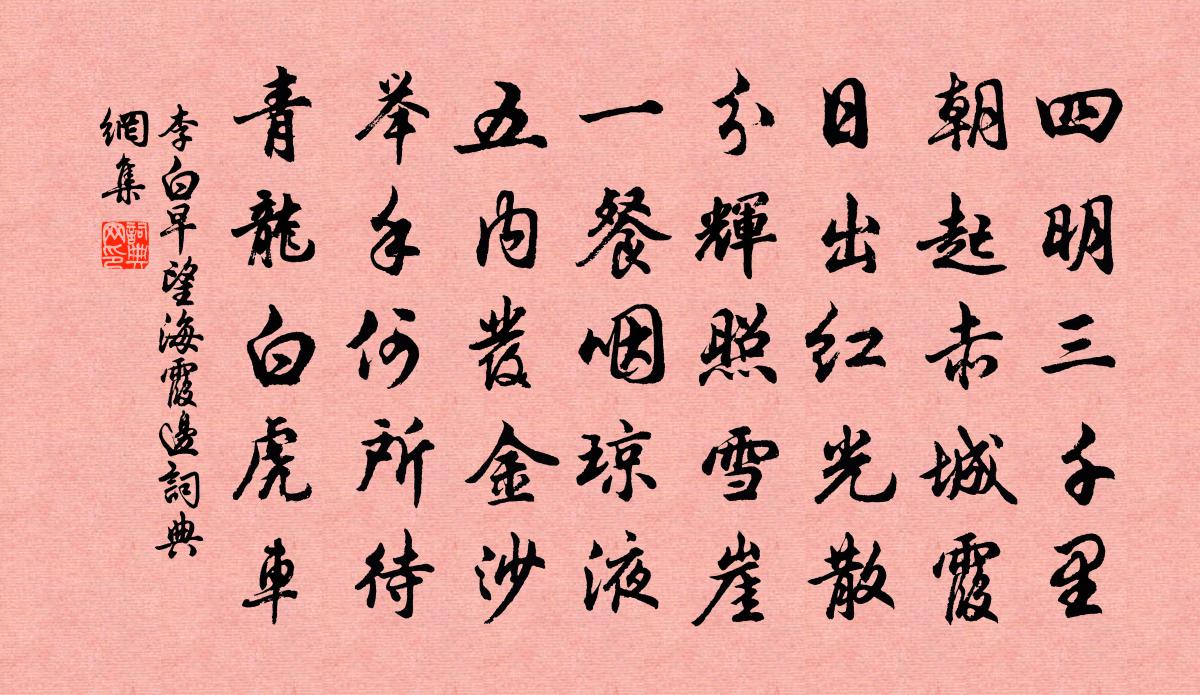 四明三千里
朝起赤城霞
日出红光散
分輝照雪崖
一餐咽琼液
五内發金沙
举手何所待
青龍白虎車
李白早望海霞邊詞典
網集
詞典
网印